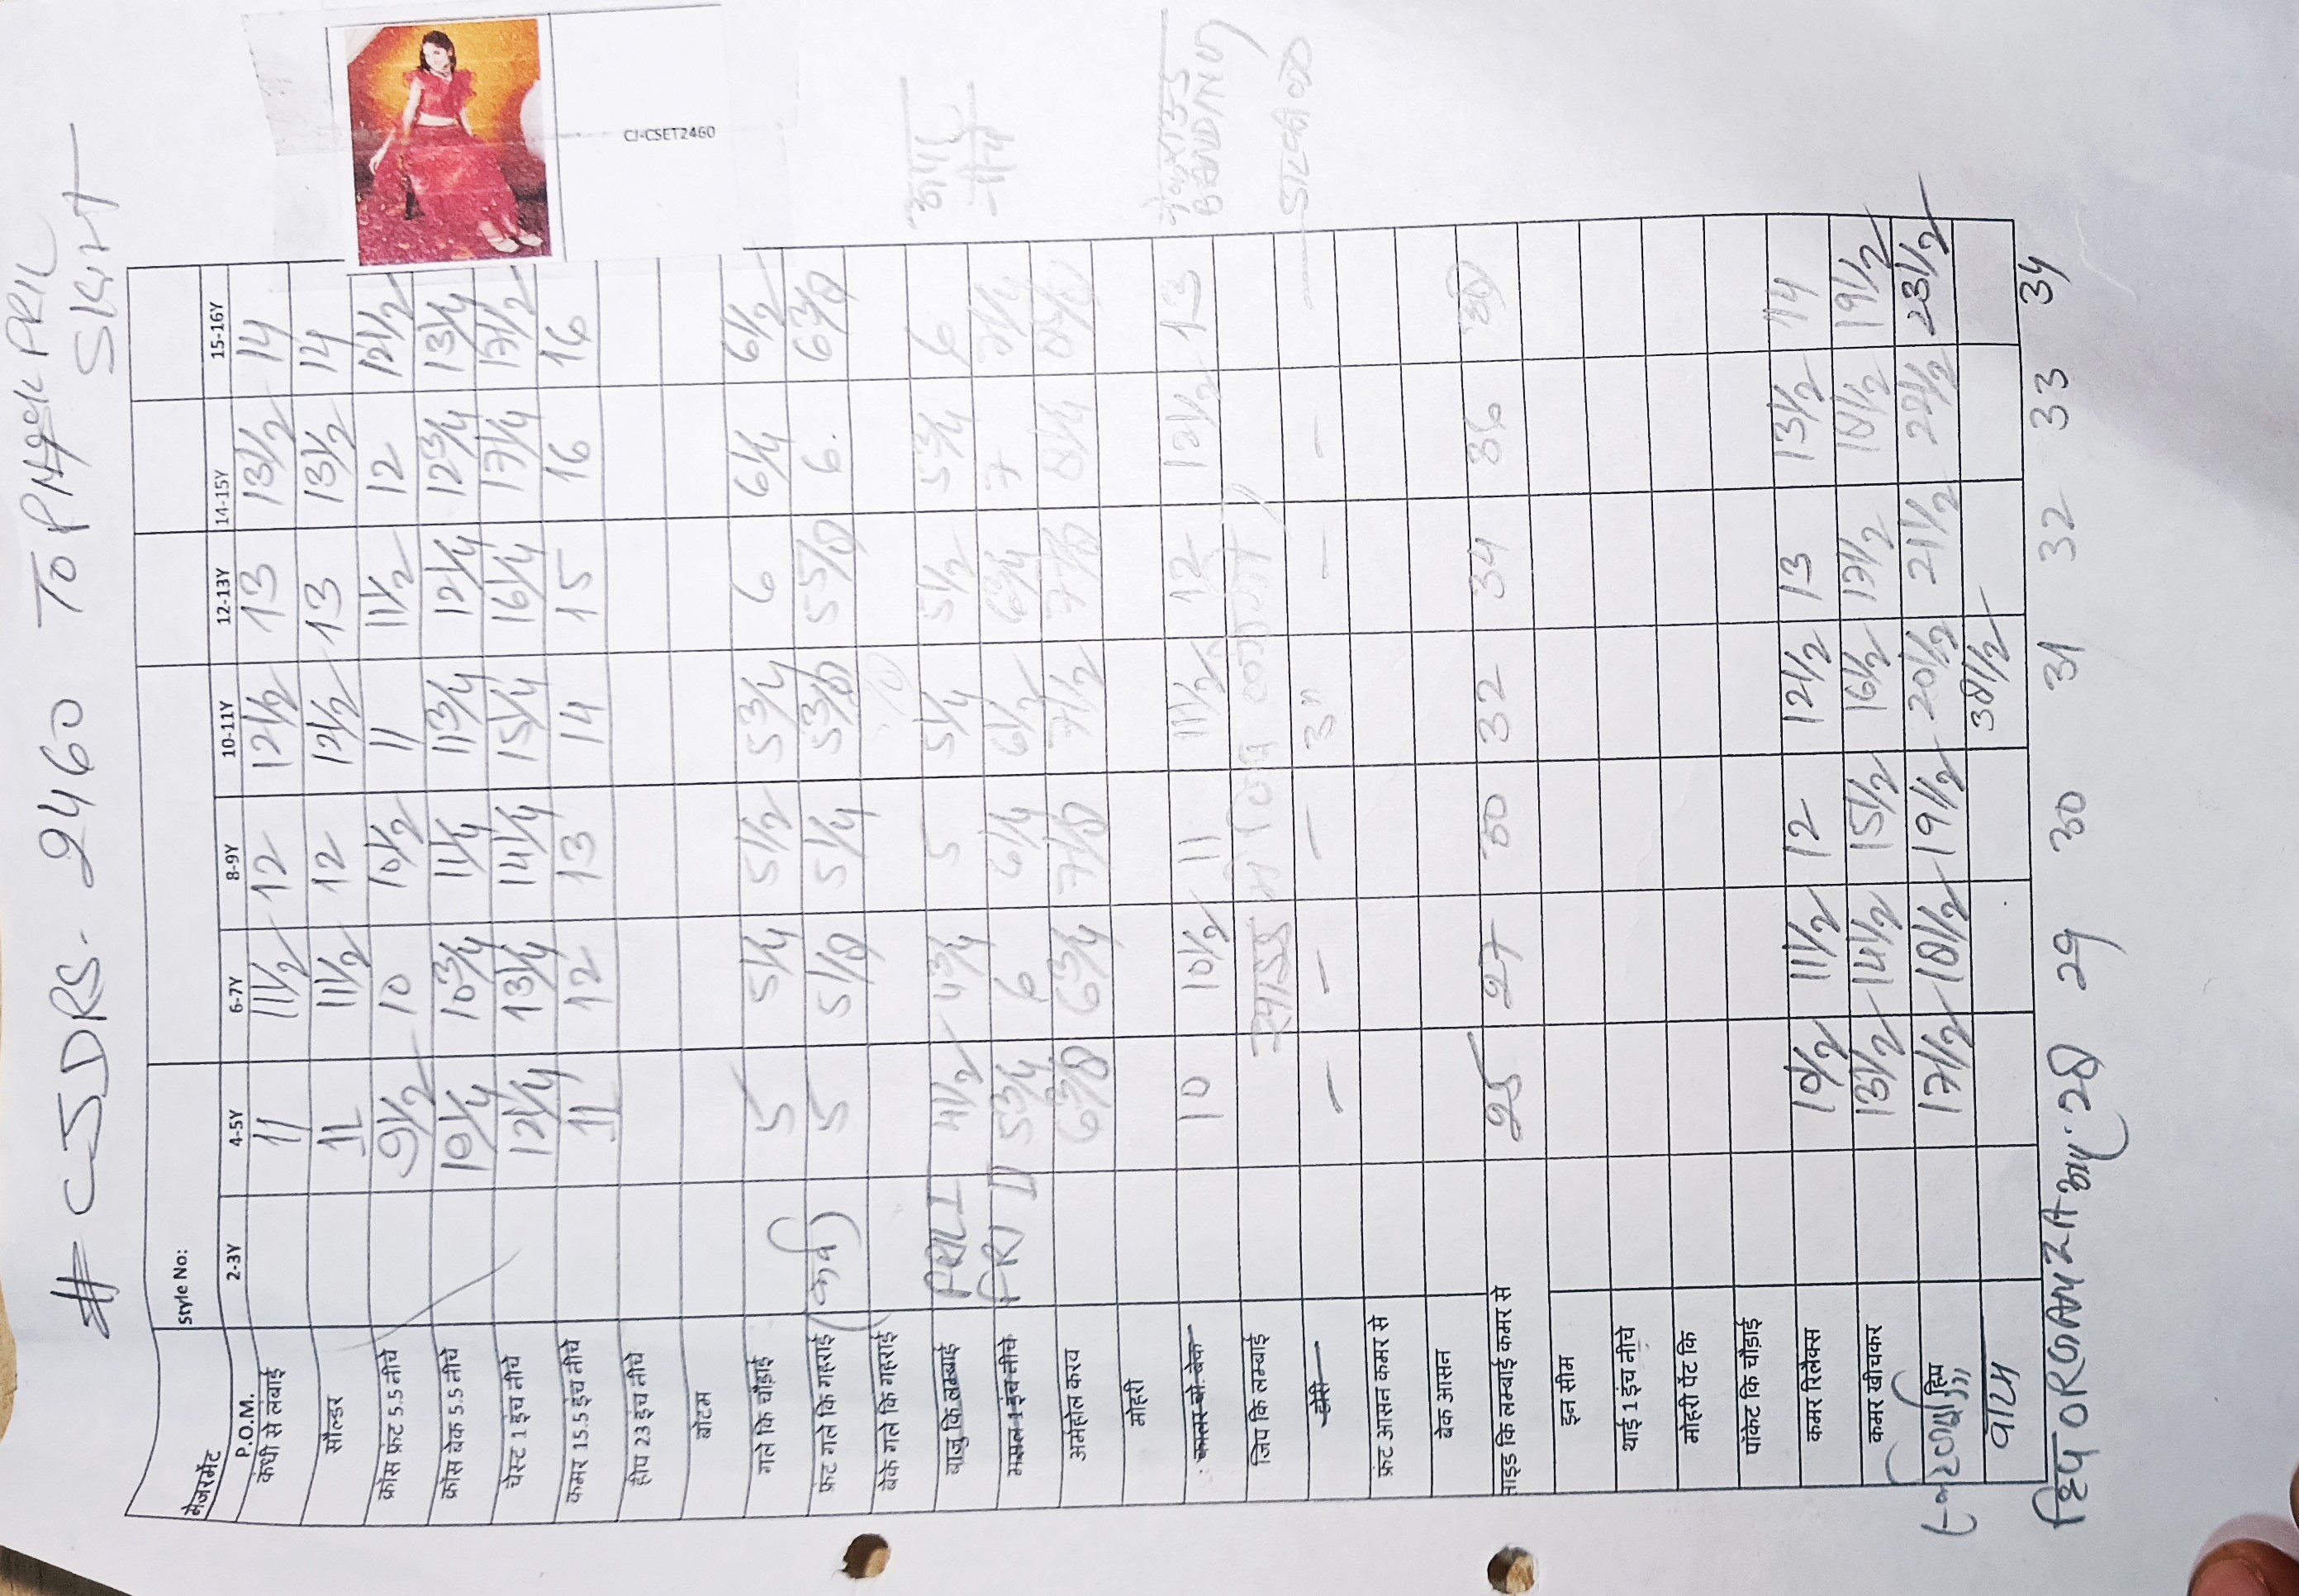 # CJDRS. 2460 TOP
Skirt
CJ-CSET2460
Style No:
मैजरमेंट
P.O.M. 2-3Y 4-5Y 6-7Y 8-9Y 10-11Y 12-13Y 14-15Y 15-16Y
कंधी से लंबाई 11 11 1/2 12 12 1/2 13 13 1/2 14
सौल्डर 11 11 1/2 12 12 1/2 13 13 1/2 14
क्रॉस फ्रंट 5.5 नीचे 9 1/2 10 10 1/2 11 11 1/2 12 12 1/2
क्रॉस बेक 5.5 नीचे 10 1/4 10 3/4 11 1/4 11 3/4 12 1/4 12 3/4 13 1/4
चेस्ट 1 इंच नीचे 12 1/4 13 1/4 14 1/4 15 1/4 16 1/4 17 1/4 17 1/2
कमर 15.5 इंच नीचे 11 12 13 14 15 16 16
हीप 23 इंच नीचे
बॉटम
गले कि चौड़ाई 5 5 1/4 5 1/2 5 3/4 6 6 1/4 6 1/2
फ्रंट गले कि गहराई 5 5 1/8 5 1/4 5 3/8 5 5/8 6 6 3/8
बेके गले कि गहराई
बाजु कि लम्बाई FRILL 4 1/2 4 3/4 5 5 1/4 5 1/2 5 3/4 6
मसल 1 इंच नीचे 5 3/4 6 6 1/4 6 1/2 6 3/4 7 7 1/4
अर्महोल करव 6 3/8 6 3/4 7 1/8 7 1/2 7 7/8 8 1/4
मोहरी
कालर बो. बेक 10 10 1/2 11 11 1/2 12 12 1/2 13
जिप कि लम्बाई साइड में
डोरी - - - 3" - -
फ्रंट आसन कमर से
बेक आसन
साइड कि लम्बाई कमर से 25 27 30 32 34 36 38
इन सीम
थाई 1 इंच नीचे
मोहरी पेंट कि
पॉकेट कि चौड़ाई
कमर रिलैक्स 10 1/2 11 1/2 12 12 1/2 13 13 1/2 14
कमर खीचकर 13 1/2 14 1/2 15 1/2 16 1/2 17 1/2 18 1/2 19 1/2
हिप 17 1/2 18 1/2 19 1/2 20 1/2 21 1/2 22 1/2 23 1/2
38 1/2
हिप 28 29 30 31 32 33 34